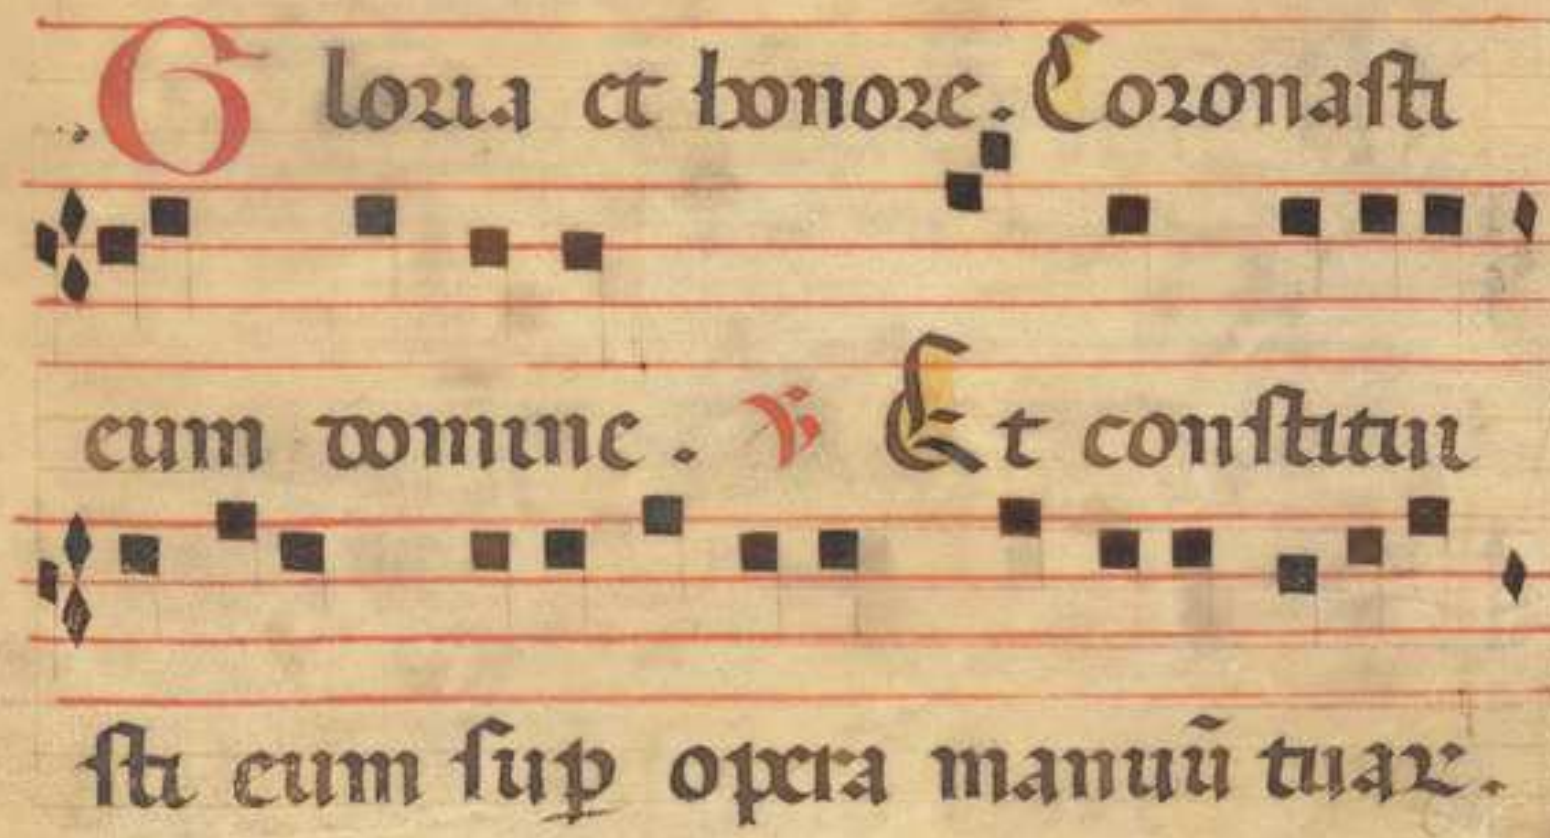 Gloria et honore. Coronasti
eum domine. ℣ Et constitui
sti eum sup̱ opera manuū tuaꝝ.